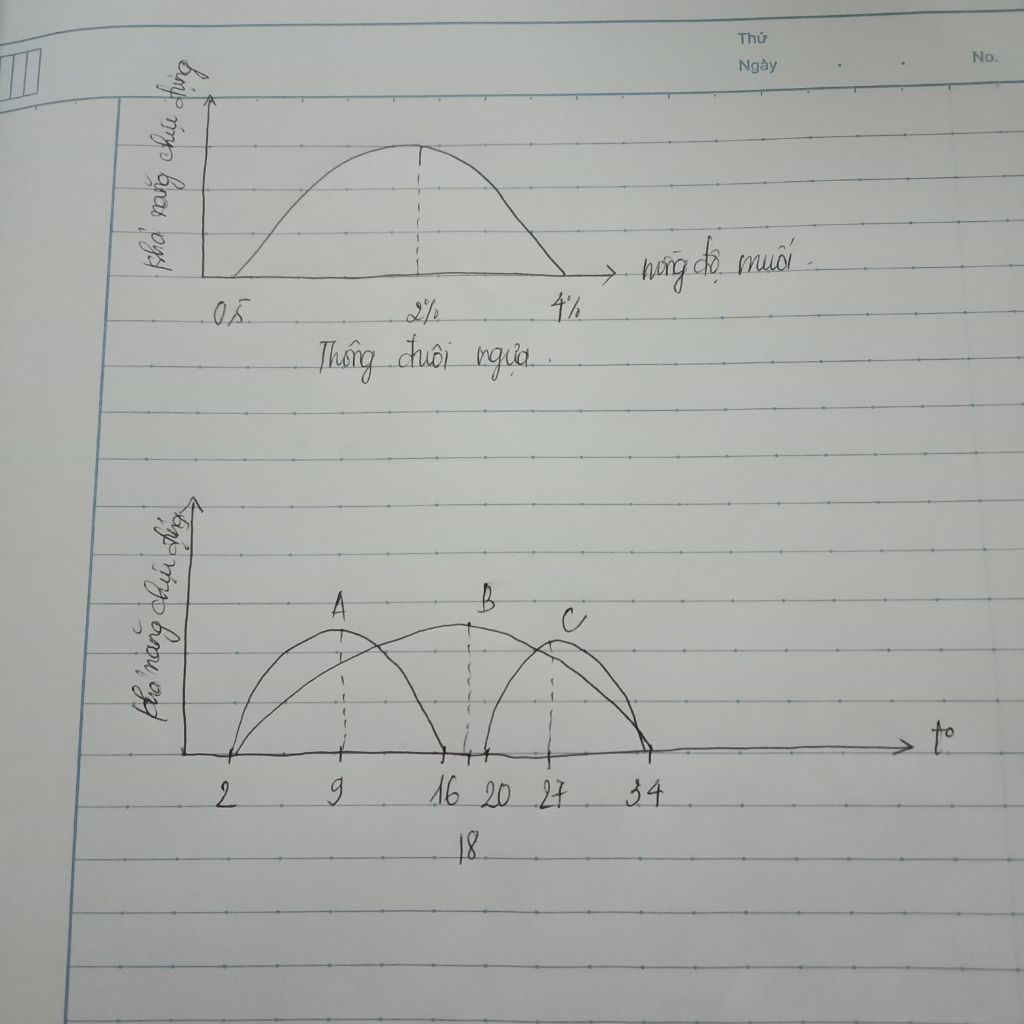 Thứ
Ngày
No.
khả năng chịu đựng
nồng độ muối
0,5
2%
4%
Thông đuôi ngựa.
khả năng chịu đựng
A
B
C
t°
2
9
16
20
27
34
18